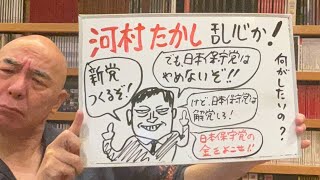 河村たかし乱心か!
何がしたいの?
でも日本保守党は
やめないぞ!!
新党
つくるぞ!
けど、日本保守党は
解党しろ!
日本保守党の
金をよこせ!!